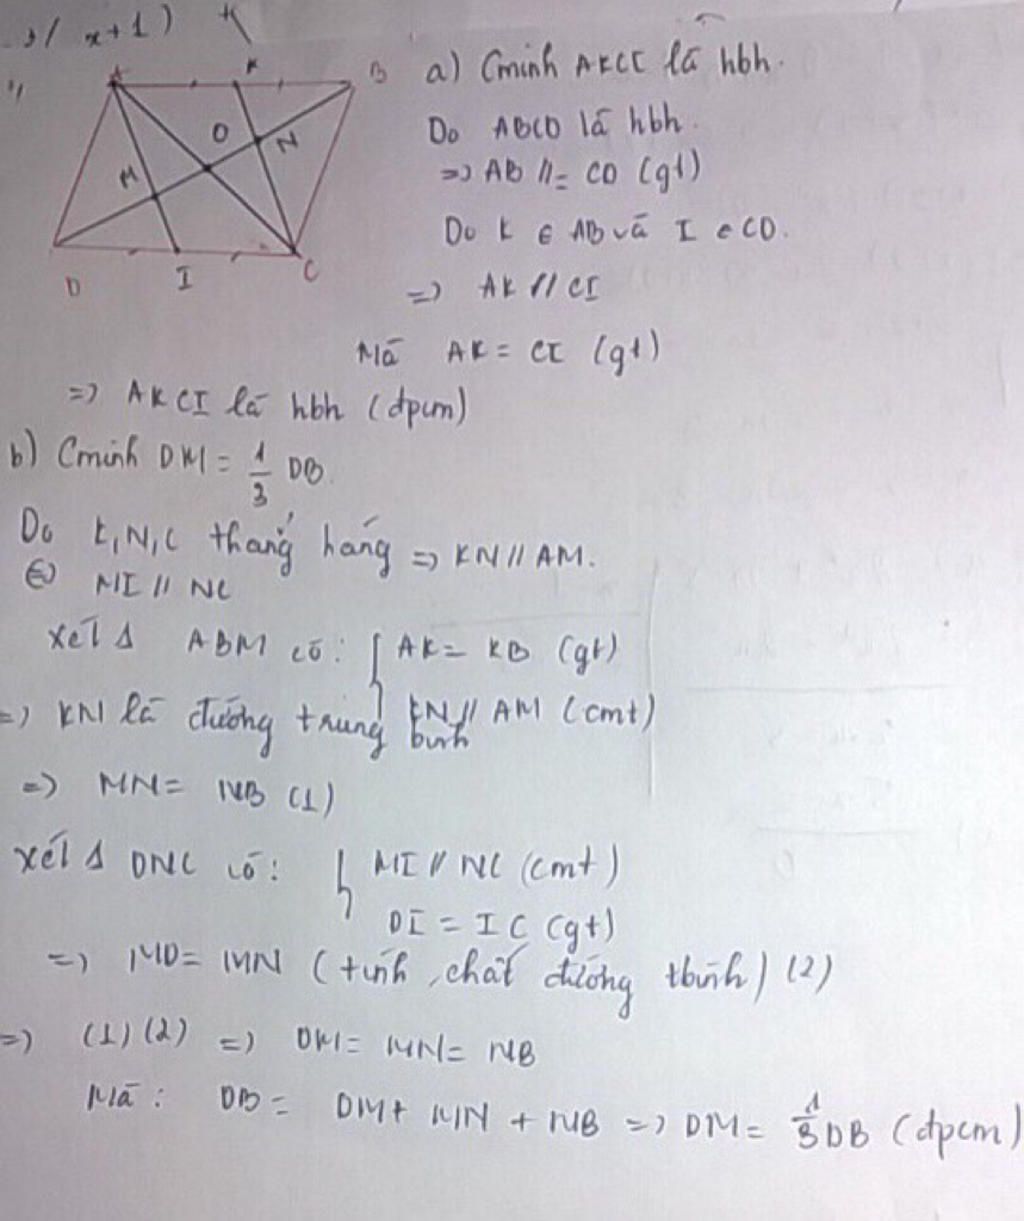 x+1)
A K B
O N
M
D I C
a) Cminh AKCI là hbh.
Do ABCD là hbh.
=> AB //= CD (gt)
Do K ∈ AB và I ∈ CD.
=> AK // CI
Mà AK = CI (gt)
=> AKCI là hbh (đpcm)
b) Cminh DM = 1/3 DB.
Do K,N,C thẳng hàng => KN // AM.
MI // NC
Xét Δ ABM có: { AK = KB (gt)
KN // AM (cmt)
=> KN là đường trung bình
=> MN = NB (1)
Xét Δ DNC có: { MI // NC (cmt)
DI = IC (gt)
=> MD = MN (tính chất đường tbình) (2)
=> (1) (2) => DM = MN = NB
Mà : DB = DM + MN + NB => DM = 1/3 DB (đpcm)